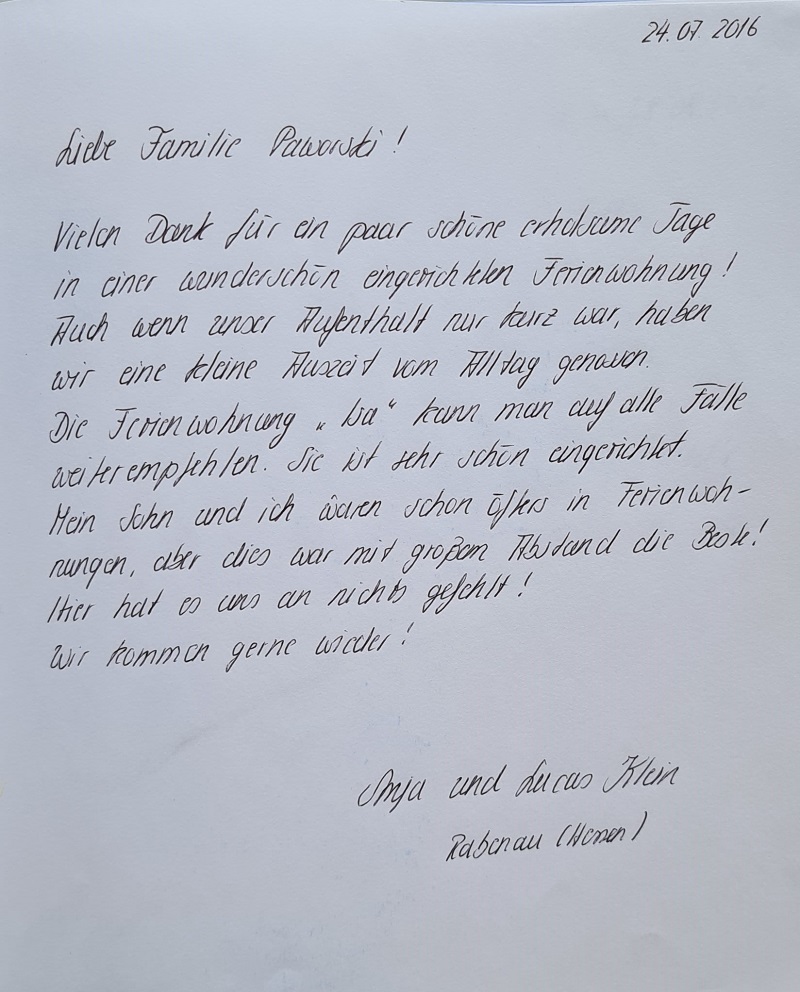 24.07.2016
Liebe Familie Paworski!
Vielen Dank für ein paar schöne erholsame Tage
in einer wunderschön eingerichteten Ferienwohnung!
Auch wenn unser Aufenthalt nur kurz war, haben
wir eine kleine Auszeit vom Alltag genossen.
Die Ferienwohnung „Isa“ kann man auf alle Fälle
weiterempfehlen. Sie ist sehr schön eingerichtet.
Mein Sohn und ich waren schon öfters in Ferienwoh-
nungen, aber dies war mit großem Abstand die Beste!
Hier hat es uns an nichts gefehlt!
Wir kommen gerne wieder!
Anja und Lucas Klein
Rabenau (Hessen)